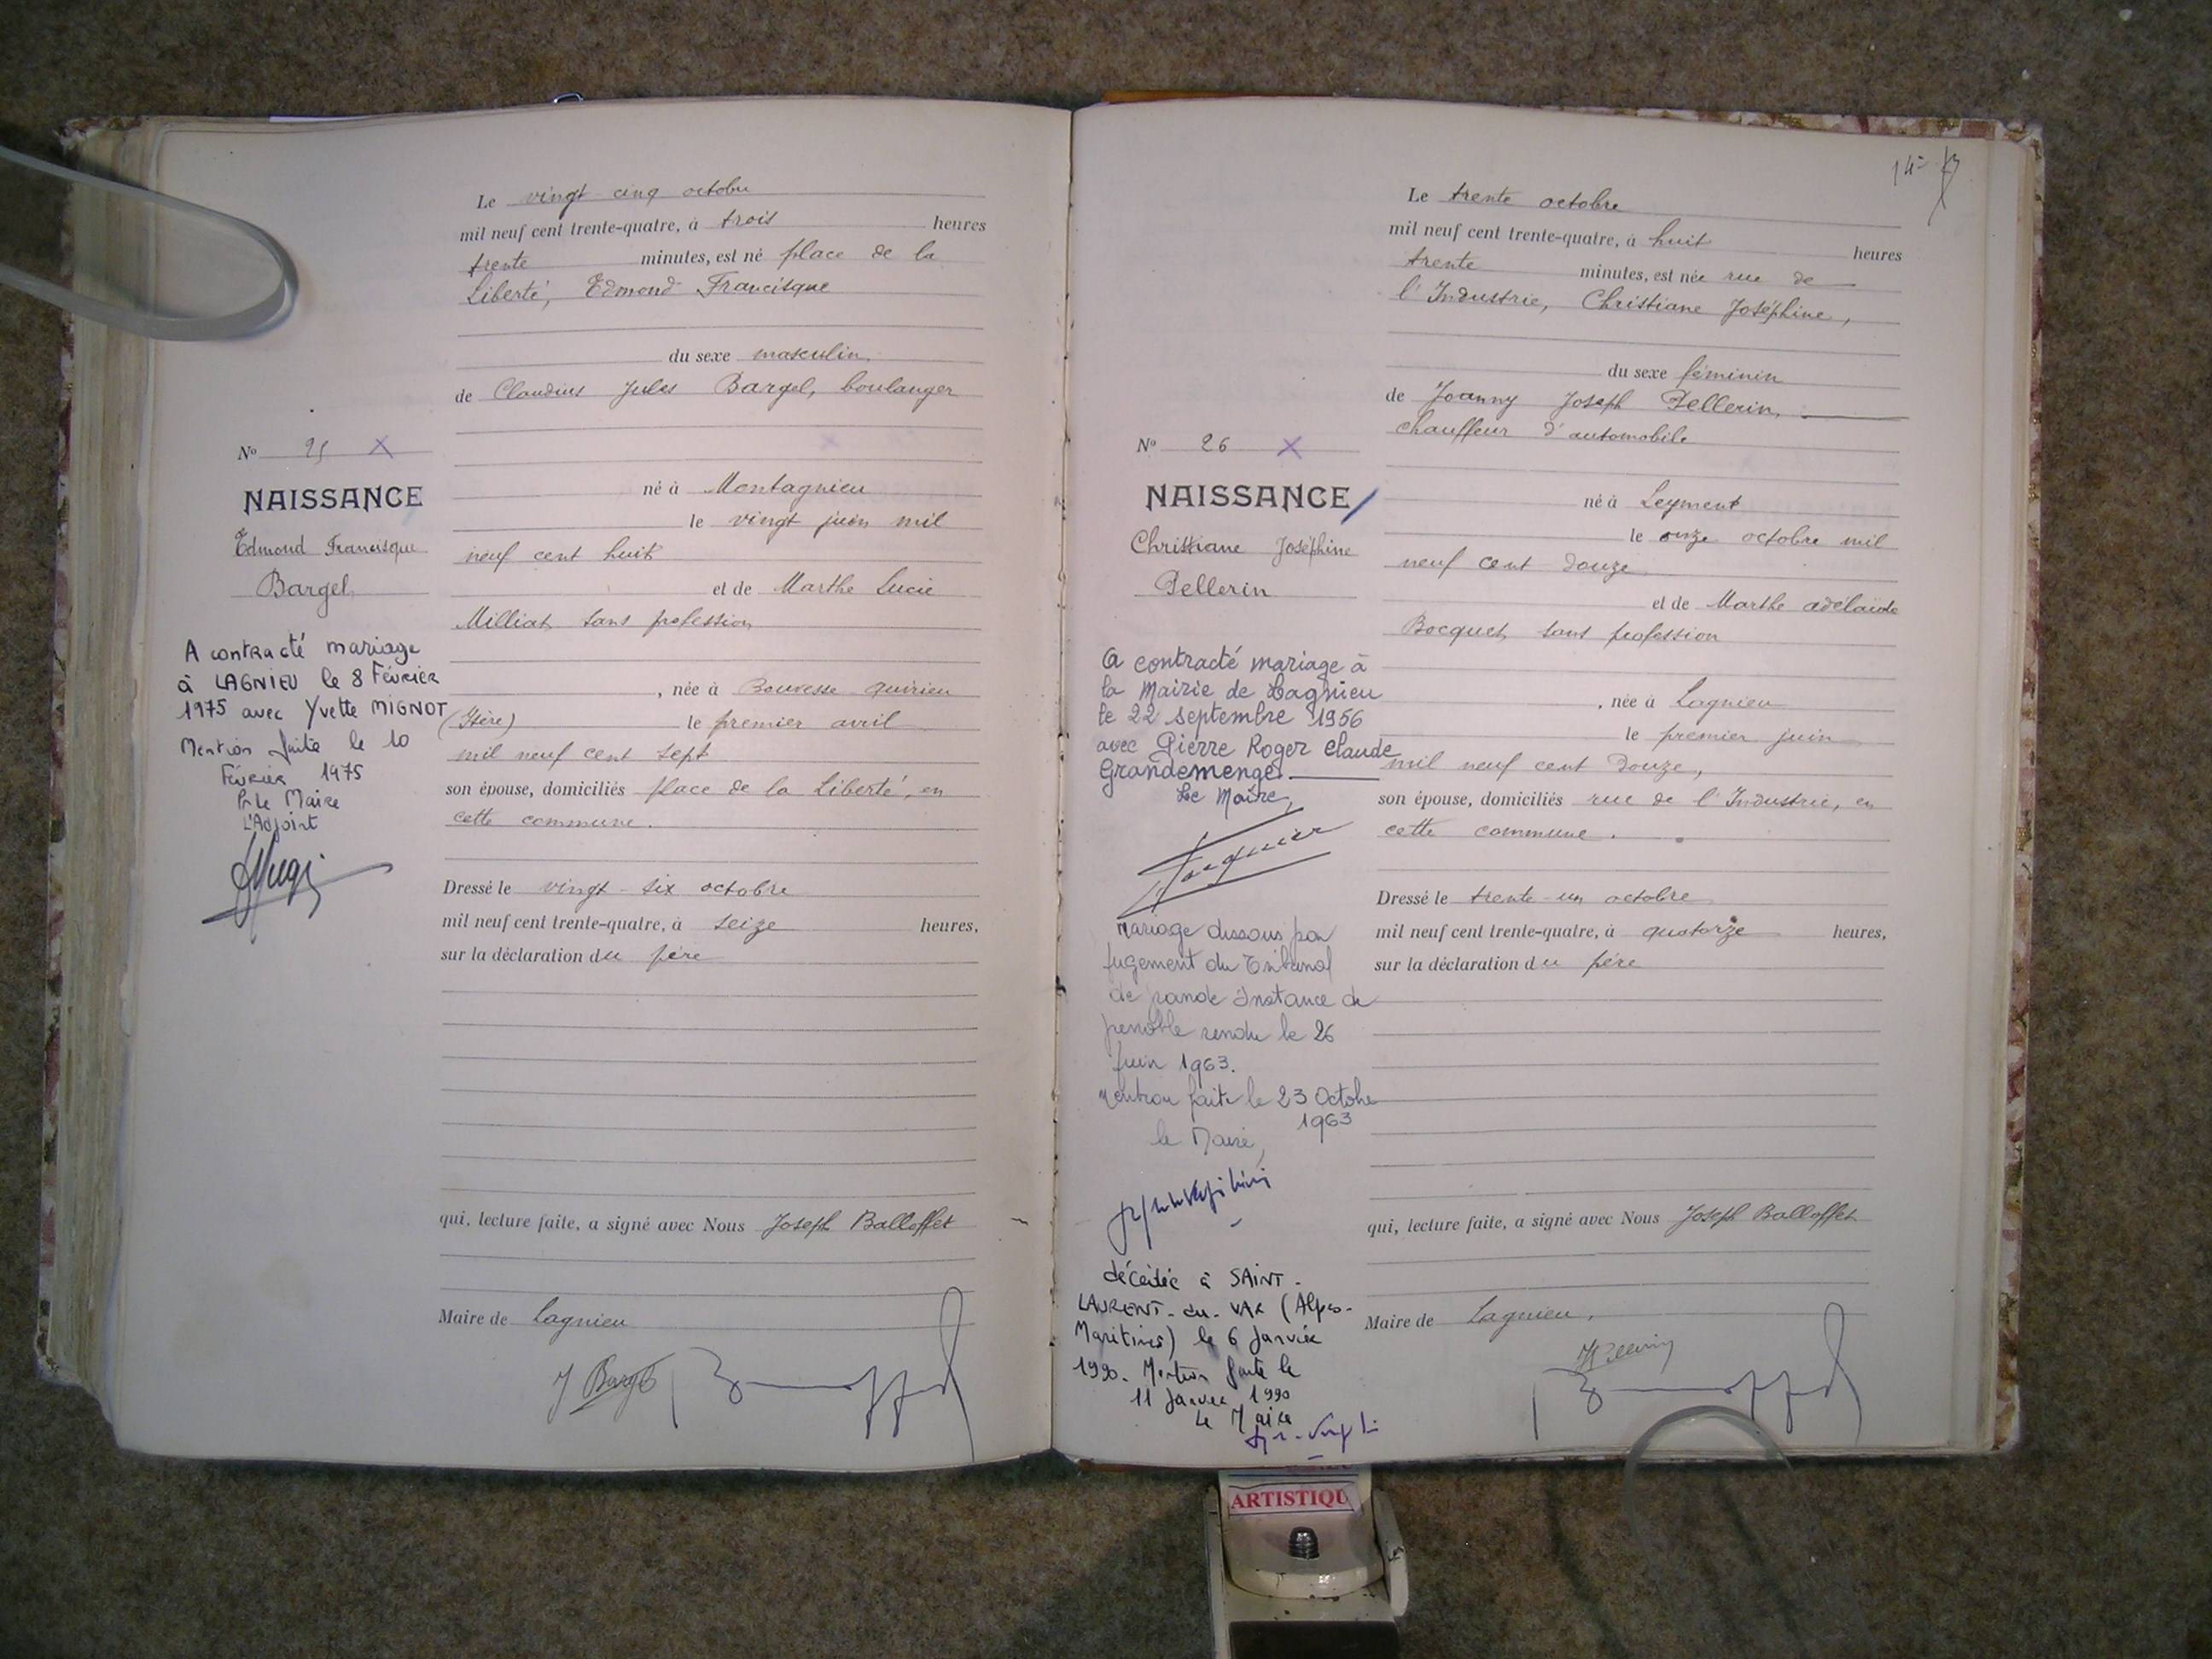 Le vingt cinq octobre
mil neuf cent trente-quatre, à trois heures
trente minutes, est né place de la
Liberté, Edmond Francisque
du sexe masculin,
de Claudius Jules Bargel, boulanger
né à Montagnieu
le vingt juin mil
neuf cent huit
et de Marthe Lucie
Milliat, sans profession
, née à Bouvesse-Quirieu
(Isère) le premier avril
mil neuf cent sept
son épouse, domiciliés place de la Liberté, en
cette commune.
Dressé le vingt-six octobre
mil neuf cent trente-quatre, à seize heures,
sur la déclaration du père
qui, lecture faite, a signé avec Nous Joseph Balloffet
Maire de Lagnieu
J Bargel
No 25 X
NAISSANCE
Edmond Francisque
Bargel
A contracté mariage
à LAGNIEU le 8 Février
1975 avec Yvette MIGNOT
Mention faite le 10
Février 1975
P. le Maire
L'Adjoint
14
Le trente octobre
mil neuf cent trente-quatre, à huit heures
trente minutes, est née rue de
l'Industrie, Christiane Joséphine,
du sexe féminin
de Joanny Joseph Pellerin,
chauffeur d'automobile
né à Leyment
le onze octobre mil
neuf cent douze
et de Marthe adélaïde
Bocquet, sans profession
, née à Lagnieu
le premier juin
mil neuf cent douze,
son épouse, domiciliés rue de l'Industrie, en
cette commune.
Dressé le trente-un octobre
mil neuf cent trente-quatre, à quatorze heures,
sur la déclaration du père
qui, lecture faite, a signé avec Nous Joseph Balloffet
Maire de Lagnieu,
No 26 X
NAISSANCE
Christiane Joséphine
Pellerin
a contracté mariage à
la Mairie de Lagnieu
le 22 septembre 1956
avec Pierre Roger Claude
Grandemenge.
Le Maire,
Mariage dissous par
jugement du Tribunal
de grande Instance de
grenoble rendu le 26
juin 1963.
Mention faite le 23 Octobre
1963
le Maire,
décédée à SAINT-
LAURENT-du-VAR (Alpes-
Maritimes) le 6 Janvier
1990. Mention faite le
11 Janvier 1990
Le Maire
ARTISTIQU